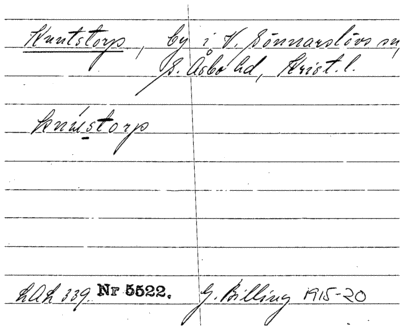 Knutstorp, by i V. Sönnarslövs sn,
S. Åsbo hd, Krist. l.
knústorp
LAL 339. Nr 5522. G. Billing 1915-20